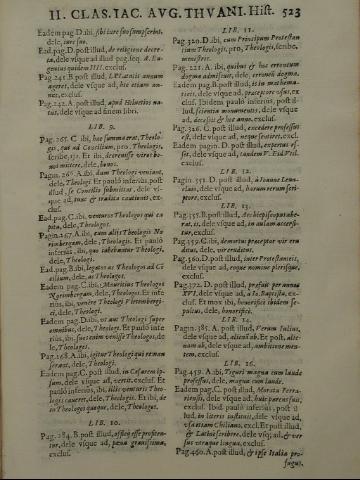 II. CLAS. IAC. AVG. THVANI. Hist. 523
Eadem pag. D. ibi, sibi iure suo sumpserint,
dele, iure suo.
Ead. pag. D. post illud, de religione decreta,
dele vsque ad illud pag. seq. A. Eugenius
quidem IIII. exclus.
Pag. 241. B. post illud,
ageret, dele vsque ad, hic etiam annus,
exclus.
Pag. 242. A. post illud, apud Heluetios natus,
dele vsque ad finem libri.
LIB. 9.
Pag. 265. C. ibi, hoc summa erat, Theologi,
qui ad Concilium, pro, Theologi,
scribe, iji. Et ibi, decreuisse viros bonos
mittere, dele, bonos.
Pagin. 266. A. ibi, dum Theologi veniant,
dele, Theologi. Et paulo inferius, post
illud, se Concilio submittat, dele vsque
ad, tuas & tradita cautionis, exclus.
Ead. pag. C. ibi, venturos Theologos qui capita,
dele, Theologos.
Pagin. 267. A. ibi, cum alijs Theologis Norimbergam,
dele, Theologis. Et paulo
inferius, ibi, quo iubebantur Theologi,
dele, Theologi.
Ead. pag. B. ibi, legatos ac Theologos ad Cilium,
dele, ac Theologos.
Eadem pag. C. ibi, Mauritius Theologos
Norimbergam, dele, Theologos. Et inferius,
ibi, venere Theologi Vvitembergici,
dele, Theologi.
Eadem pag. D. ibi, vt aut Theologi super
omnibus, dele, Theologi. Et paulo inferius,
ibi, suos enim venisse Theologos, dele,
Theologos.
Pag. 268. A. ibi, igitur Theologi qui et manserant,
dele, Theologi.
Eadem pag. C. post illud, in Caesarem ipsum,
dele vsque ad, certè. exclus. Et
paulo inferius, ibi, ille venturis Theologis
caueret, dele, Theologis. Et ibi, de
in Theologos quoque, dele, Theologos.
LIB. 10.
Pag. 284. B. post illud, assiij esse profitentur,
dele vsque ad, pœna grauissima,
exclus.
LIB. 11.
Pag. 320. D. ibi, cum Principum Protestantium
Theologis, pro, Theologis, scribe,
ministris.
Pag. 321. A. ibi, quibus & hic errantem
dogma admisisset, dele, erraneū dogma.
Eadem pag. B. post illud, in itinere miserat,
dele vsque ad, praeceptor ossus, exclus.
Ibidem paulo inferius, post illud,
scientia monumentis, dele vsque
ad, decessit & hoc anno, exclus.
Pag. 326. C. post illud, excedere professus
est, dele vsque ad, neque sentiret, excl.
Eadem pagin. D. post illud, expertus esset,
dele vsque ad, tandem V. Eid. Vtil.
exclus.
LIB. 12.
Pagin. 351. D. post illud, à Ioanne Leuuclaio,
dele vsque ad, horum rerum scriptore,
exclus.
LIB. 13.
Pag. 355. B. post illud, Archiepiscopus aberat,
is, dele vsque ad, in aulam accersitur,
exclus.
Pag. 359. C. ibi, demutat praeceptor vir eruditus,
dele, vir eruditus.
Pag. 360. D. post illud, inter Protestanteis,
dele vsque ad, eoque nomine plerisque,
exclus.
Pag. 372. D. post illud, praefuit per annos
XVI, dele vsque ad, à Io. Baptista, exclus.
Et mox ibi, honorifice ibidem sepultus,
dele, honorifice.
LIB. 14.
Pagin. 385. A. post illud, Verum Iulius,
dele vsque ad, alienū ab. Et post, alienum
ab, dele vsque ad, ambitione mentem,
exclus.
LIB. 16.
Pag. 459. A. ibi, Tiguri magna cum laude
professus, dele, magna cum laude.
Eadem pag. C. post illud, Morata Ferrariensis,
dele vsque ad, huic parens fuit,
exclus. Ibid. paulo inferius, post illud,
in literis instituit, dele vsque ad,
vsitatiam Chilians, excl. Et post illud,
& Latinè scribere, dele vsq; ad, & versus
vtraque lingua, exclus.
Pag. 460. A. post illud, & ipse Italia profugus,